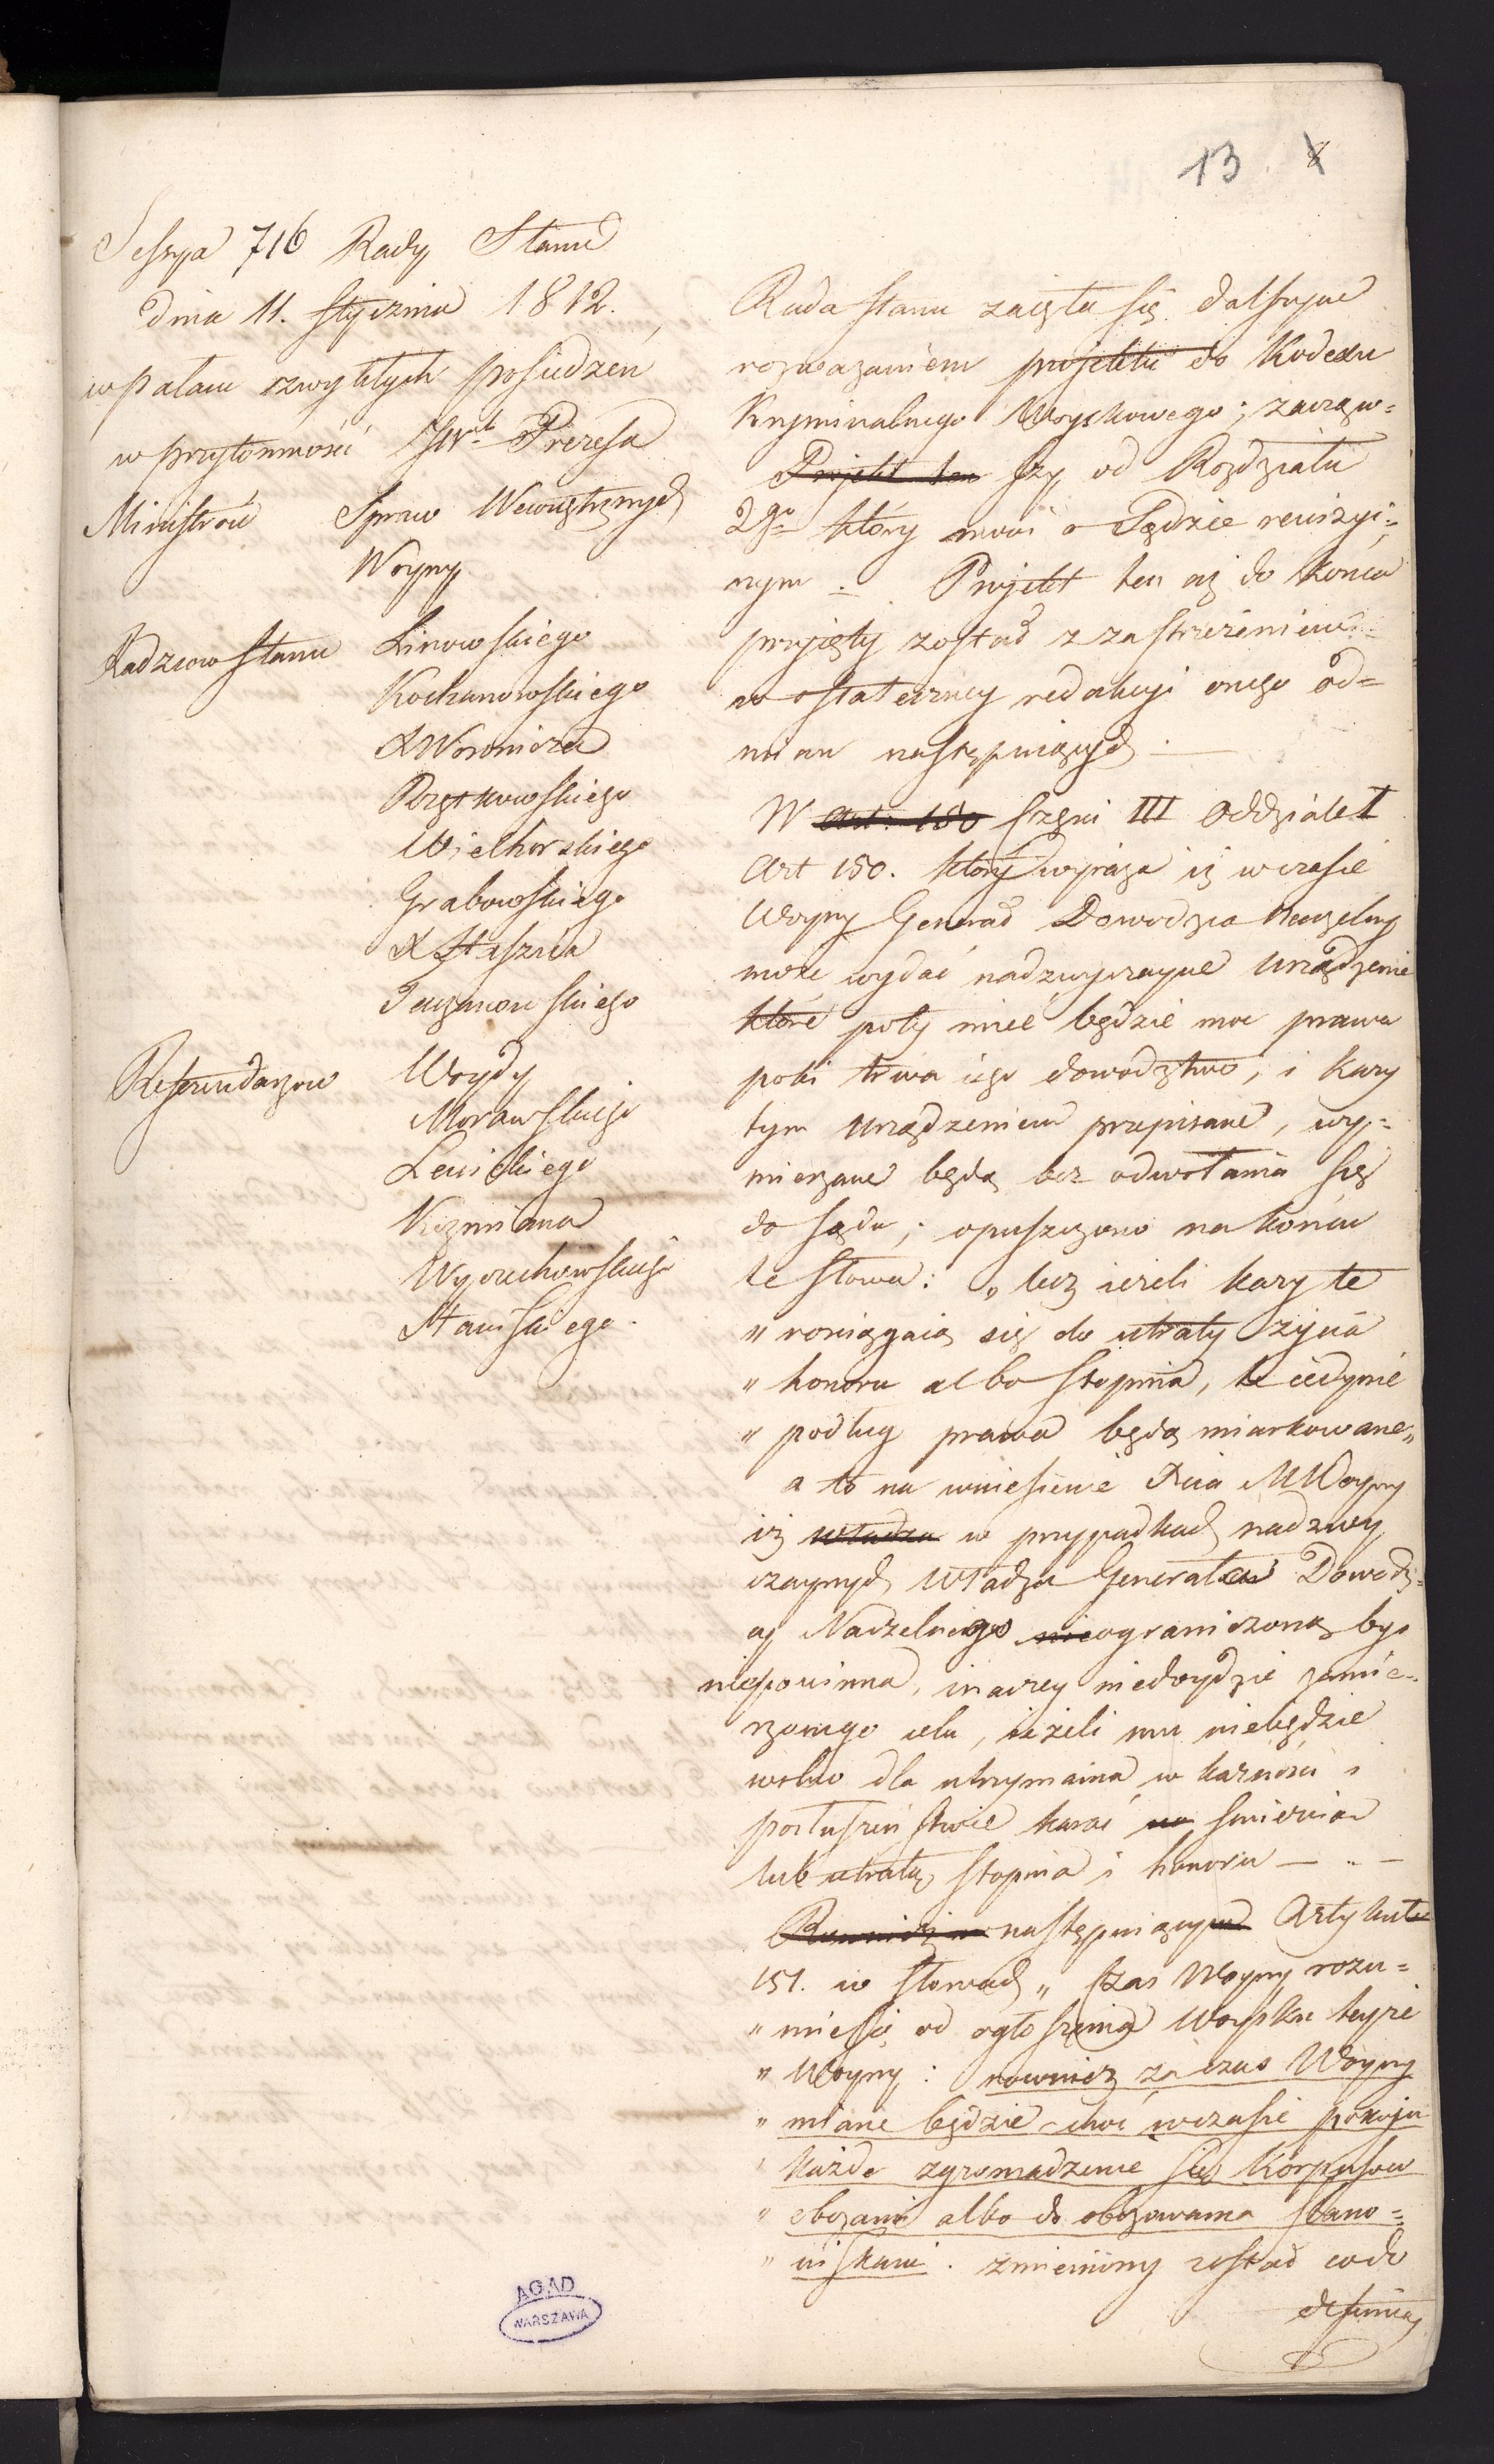 13 8
Sessya 716 Rady Stanu
dnia 11. stycznia 1812.
w pałacu zwykłych posiedzeń
w przytomności JW Prezesa
Ministrów Spraw Wewnętrznych
Woyny
Radzców Stanu Linowskiego
Kochanowskiego
X Woronicza
Wielhorskiego
Grabowskiego
X Staszica
Referendarzow Woydy
Morawskiego
Lewickiego
Kozmiana
Wyczechowskiego
Rada Stanu zaięła się dalszym
rozważaniem projektu do Kodexu
Kryminalnego Woyskowego; zacząw=
Projekt ten szy od Rozdziału
2go który mówi o Sądzie rewizyi=
nym. Projekt ten aż do końca
przyięty został z zastrzeżeniem
w ostateczney redakcyi onego od=
mian następuiących.
W Art: 150 części III Oddziale I
Art 150. który wyraża iż w czasie
Woyny Generał Dowodzca Naczelny
może wydać nadzwyczayne urządzenie
które poty mieć będzie moc prawa
poki trwa iego dowodztwo; i kary
tym urządzeniem przepisane, wy=
mierzane będą bez odwołania się
do sądu; opuszczono na końcu
te słowa: „ lecz ieżeli kary te
„ rosciągaią się do utraty życia
„ honoru albo stopnia, te iedynie
„ podług prawa będą miarkowane „
a to na wniesienie Xcia M Woyny
iż władza w przypadkach nadzwy
czaynych władza Generała Dowodz=
cy Naczelnego nieograniczoną być
niepowinna, inaczey niedoydzie zamie=
rzonego celu, ieżeli mu niebędzie
wolno dla utrzymania w karności i
posłuszeństwie karać na śmiercią
lub utratą stopnia i honoru — „ —
Rownież w następuiącym Artykule
151. w słowach „ Czas Woyny rozu=
„ mie się od ogłoszenia Woysku teyże
„ Woyny: rownież za czas Woyny
„ miane będzie choć w czasie pokoju
„ każde zgromadzenie się Korpusow
„ obozami albo do obozowania stano=
„ wiskami. zmieniony został co do
definicyi
AGAD
WARSZAWA